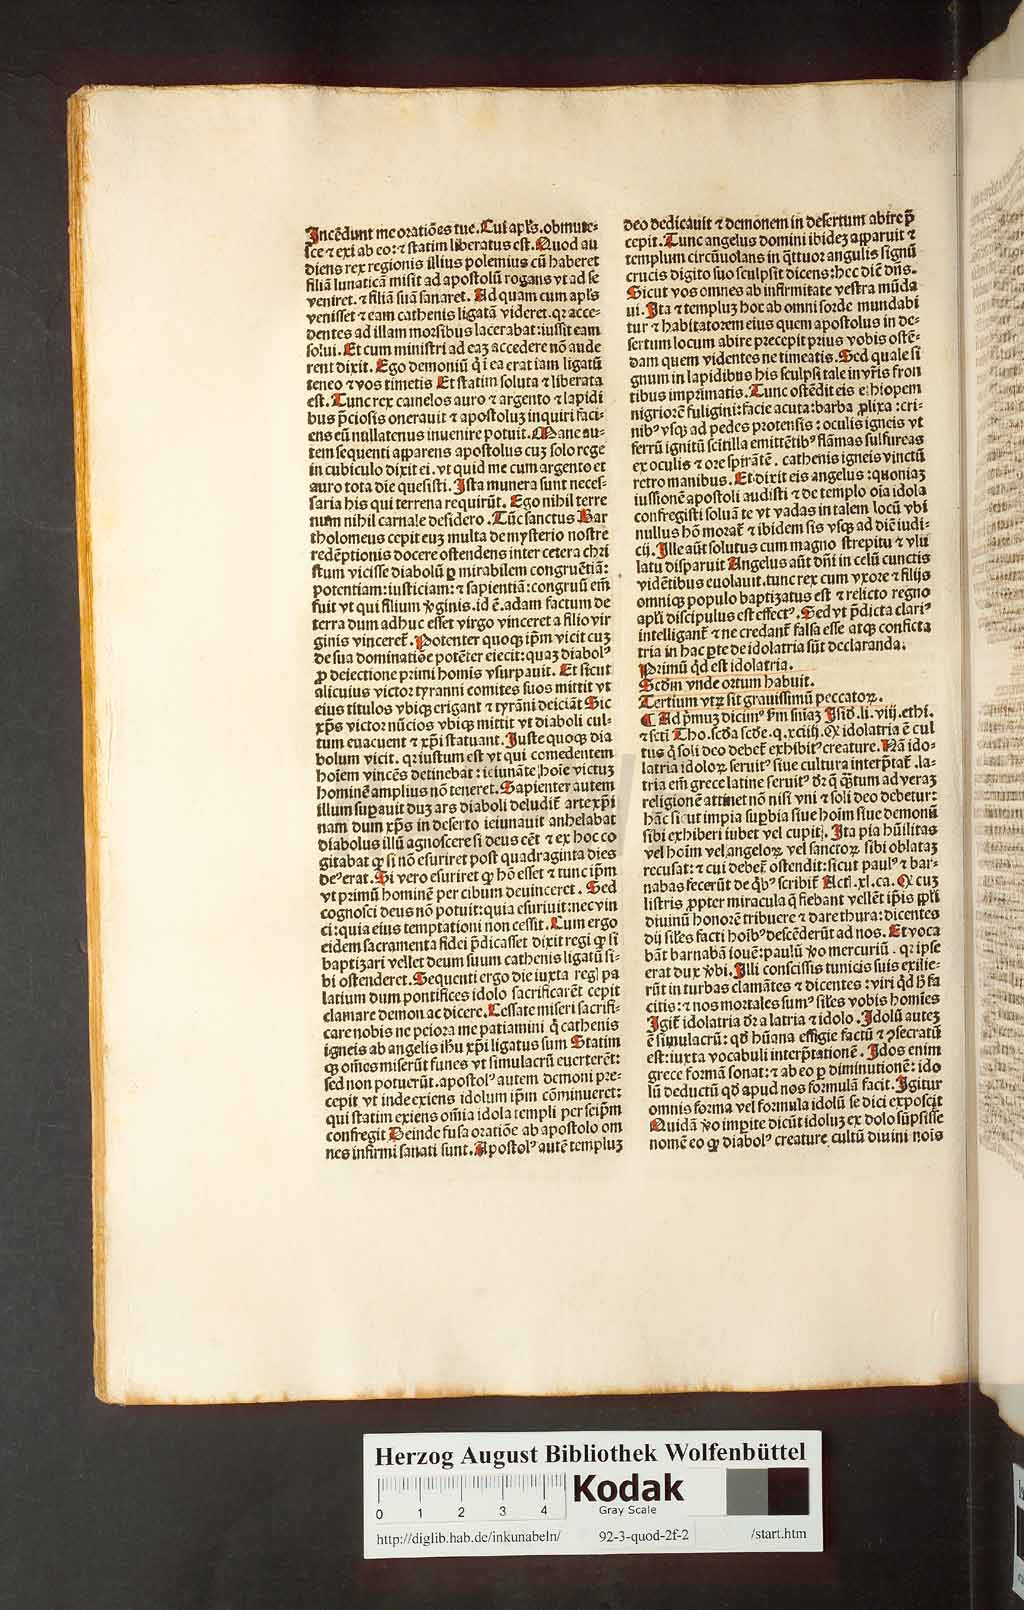 Incēdunt me oratiōes tue. Cui apl's. obmute-
sce ⁊ exi ab eo: ⁊ statim liberatus est. Quod au
diens rex regionis illius polemius cū haberet
filiā lunaticā misit ad apostolū rogans vt ad se
veniret. ⁊ filiā suā sanaret. Ad quam cum apl's
venisset ⁊ eam cathenis ligatā videret. qꝛ acce-
dentes ad illam morsibus lacerabat: iussit eam
solui. Et cum ministri ad eaꝫ accedere nō aude
rent dixit. Ego demoniū q̄ i ea erat iam ligatū
teneo ⁊ vos timetis Et statim soluta ⁊ liberata
est. Tunc rex camelos auro ⁊ argento ⁊ lapidi
bus p̄ciosis onerauit ⁊ apostoluꝫ inquiri faci-
ens eū nullatenus inuenire potuit. Mane au-
tem sequenti apparens apostolus cuꝫ solo rege
in cubiculo dixit ei. vt quid me cum argento et
auro tota die quesisti. Ista munera sunt neces-
saria his qui terrena requirūt. Ego nihil terre
num nihil carnale desidero. Tūc sanctus Bar
tholomeus cepit euꝫ multa de mysterio nostre
redēptionis docere ostendens inter cetera chri
stum vicisse diabolū ꝑ mirabilem congruētiā:
potentiam: iusticiam: ⁊ sapientiā: congruū em̄
fuit vt qui filium v̓ginis. id ē. adam factum de
terra dum adhuc esset virgo vinceret a filio vir
ginis vinceret̄. Potenter quoqꝫ ip̄m vicit cuꝫ
de sua dominatiōe potēter eiecit: quaꝫ diabolꝰ
ꝓ deiectione primi homis vsurpauit. Et sicut
alicuius victor tyranni comites suos mittit vt
eius titulos vbiqꝫ erigant ⁊ tyrāni deiciāt Sic
xp̄s victor nūcios vbiqꝫ mittit vt diaboli cul-
tum euacuent ⁊ xp̄i statuant. Iuste quoqꝫ dia
bolum vicit. qꝛ iustum est vt qui comedentem
hoiem vincēs detinebat: ieiunāte hoie victuꝫ
hominē amplius nō teneret. Sapienter autem
illum suꝑauit duꝫ ars diaboli deludit̄ arte xp̄i
nam dum xp̄s in deserto ieiunauit anhelabat
diabolus illū agnoscere si deus eēt ⁊ ex hoc co
gitabat ꝙ si nō esuriret post quadraginta dies
deꝰ erat. Si vero esuriret ꝙ hō esset ⁊ tunc ip̄m
vt primū hominē per cibum deuinceret. Sed
cognosci deus nō potuit: quia esuriuit: nec vin
ci: quia eius temptationi non cessit. Cum ergo
eidem sacramenta fidei p̄dicasset dixit regi ꝙ si
baptizari vellet deum suum cathenis ligatū si-
bi ostenderet. Sequenti ergo die iuxta regl pa
latium dum pontifices idolo sacrificarēt cepit
clamare demon ac dicere. Cessate miseri sacrifi-
care nobis ne peiora me patiamini q̄ cathenis
igneis ab angelis ihū xp̄i ligatus sum Statim
qꝫ omēs miserūt funes vt simulacrū euerterēt:
sed non potuerūt. apostolꝰ autem demoni pre-
cepit vt inde exiens idolum ip̄m cōminueret:
qui statim exiens om̄ia idola templi per seip̄m
confregit Deinde fusa oratiōe ab apostolo om
nes infirmi sanati sunt. Apostolꝰ autē templuꝫ
deo dedicauit ⁊ demonem in desertum abire p̄
cepit. Tunc angelus domini ibideꝫ apparuit ⁊
templum circūuolans in q̄ttuor angulis signū
crucis digito suo sculpsit dicens: hec diē dn̄s.
Sicut vos omnes ab infirmitate vestra mūda
ui. Ita ⁊ templuꝫ hoc ab omni sorde mundabi
tur ⁊ habitatorem eius quem apostolus in de-
sertum locum abire precepit prius vobis ostē-
dam quem videntes ne timeatis. Sed quale si
gnum in lapidibus his sculpsi tale in vr̄is fron
tibus imprimatis. Tunc ostēdit eis ethiopem
nigriorē fuligini: facie acuta: barba ꝓlixa: cri-
nibꝰ vsqꝫ ad pedes protensis: oculis igneis vt
ferrū ignitū scintilla emittētibꝰ flāmas sulfureas
ex oculis ⁊ ore spirātē. cathenis igneis vinctū
retro manibus. Et dixit eis angelus: quoniaꝫ
iussionē apostoli audisti ⁊ de templo oīa idola
confregisti soluā te vt vadas in talem locū vbi
nullus hō morat̄ ⁊ ibidem sis vsqꝫ ad diē iudi-
cij. Ille aūt solutus cum magno strepitu ⁊ vlu
latu disparuit Angelus aūt dn̄i in celū cunctis
vidētibus euolauit. tunc rex cum vxore ⁊ filijs
omniqꝫ populo baptizatus est ⁊ relicto regno
apl'i discipulus est effectꝰ. Sed vt p̄dicta clariꝰ
intelligant̄ ⁊ ne credant̄ falsa esse atqꝫ conficta
tria in hac ꝑte de idolatria sūt declaranda.
Primū qd̄ est idolatria.
Scd̄m vnde ortum habuit.
Tertium vtꝝ sit grauissimū peccatoꝝ.
¶ Ad p̄muꝫ dicimꝰ ẜm sniaꝫ Isid̓. li. viij. ethi.
⁊ scti Tho. scd̓a scd̓e. q. xciiij. Q idolatria ē cul
tus q̄ soli deo debet̄ exhibitꝰ creature. Nā ido-
latria idoloꝝ seruitꝰ siue cultura interp̄tat̄. la-
tria em̄ grece latine seruitꝰ dr̄ q q̄ntum ad veraꝫ
religionē attinet nō nisi vni ⁊ soli deo debetur:
hāc sicut impia suꝑbia siue hoim siue demonū
sibi exhiberi iubet vel cupit. Ita pia hūilitas
vel hoim vel angeloꝝ vel sanctoꝝ sibi oblataꝫ
recusat: ⁊ cui debet̄ ostendit: sicut paulꝰ ⁊ bar-
nabas fecerūt de qbꝰ scribit̄ Actl. xl. ca. Q cuꝫ
listris ꝓpter miracula q̄ fiebant vellēt ip̄is ppl'i
diuinū honorē tribuere ⁊ dare thura: dicentes
dij sil'es facti hoibꝰ descēderūt ad nos. Et voca
bāt barnabā iouē: paulū v̓o mercuriū. qꝛ ipse
erat dux v̓bi. Illi conscissis tunicis suis exilie-
rūt in turbas clamātes ⁊ dicentes: viri qd̄ h̓ fa
citis: ⁊ nos mortales sumꝰ sil'es vobis homīes
Igit̄ idolatria dr̄ a latria ⁊ idolo. Idolū auteꝫ
ē simulacrū: qd̓ hūana effigie factū ⁊ ꝯsecratū
est: iuxta vocabuli interp̄tationē. Idos enim
grece formā sonat: ⁊ ab eo ꝑ diminutionē: ido
lū deductū qd̓ apud nos formulā facit. Igitur
omnis forma vel formula idolū se dici exposcit
Quidā v̓o impite dicūt idoluꝫ ex dolo sūpsisse
nomē eo ꝙ diabolꝰ creature cultū diuini nois
Herzog August Bibliothek Wolfenbüttel
0 1 2 3 4
Kodak
Gray Scale
http://diglib.hab.de/inkunabeln/ 92-3-quod-2f-2 /start.htm